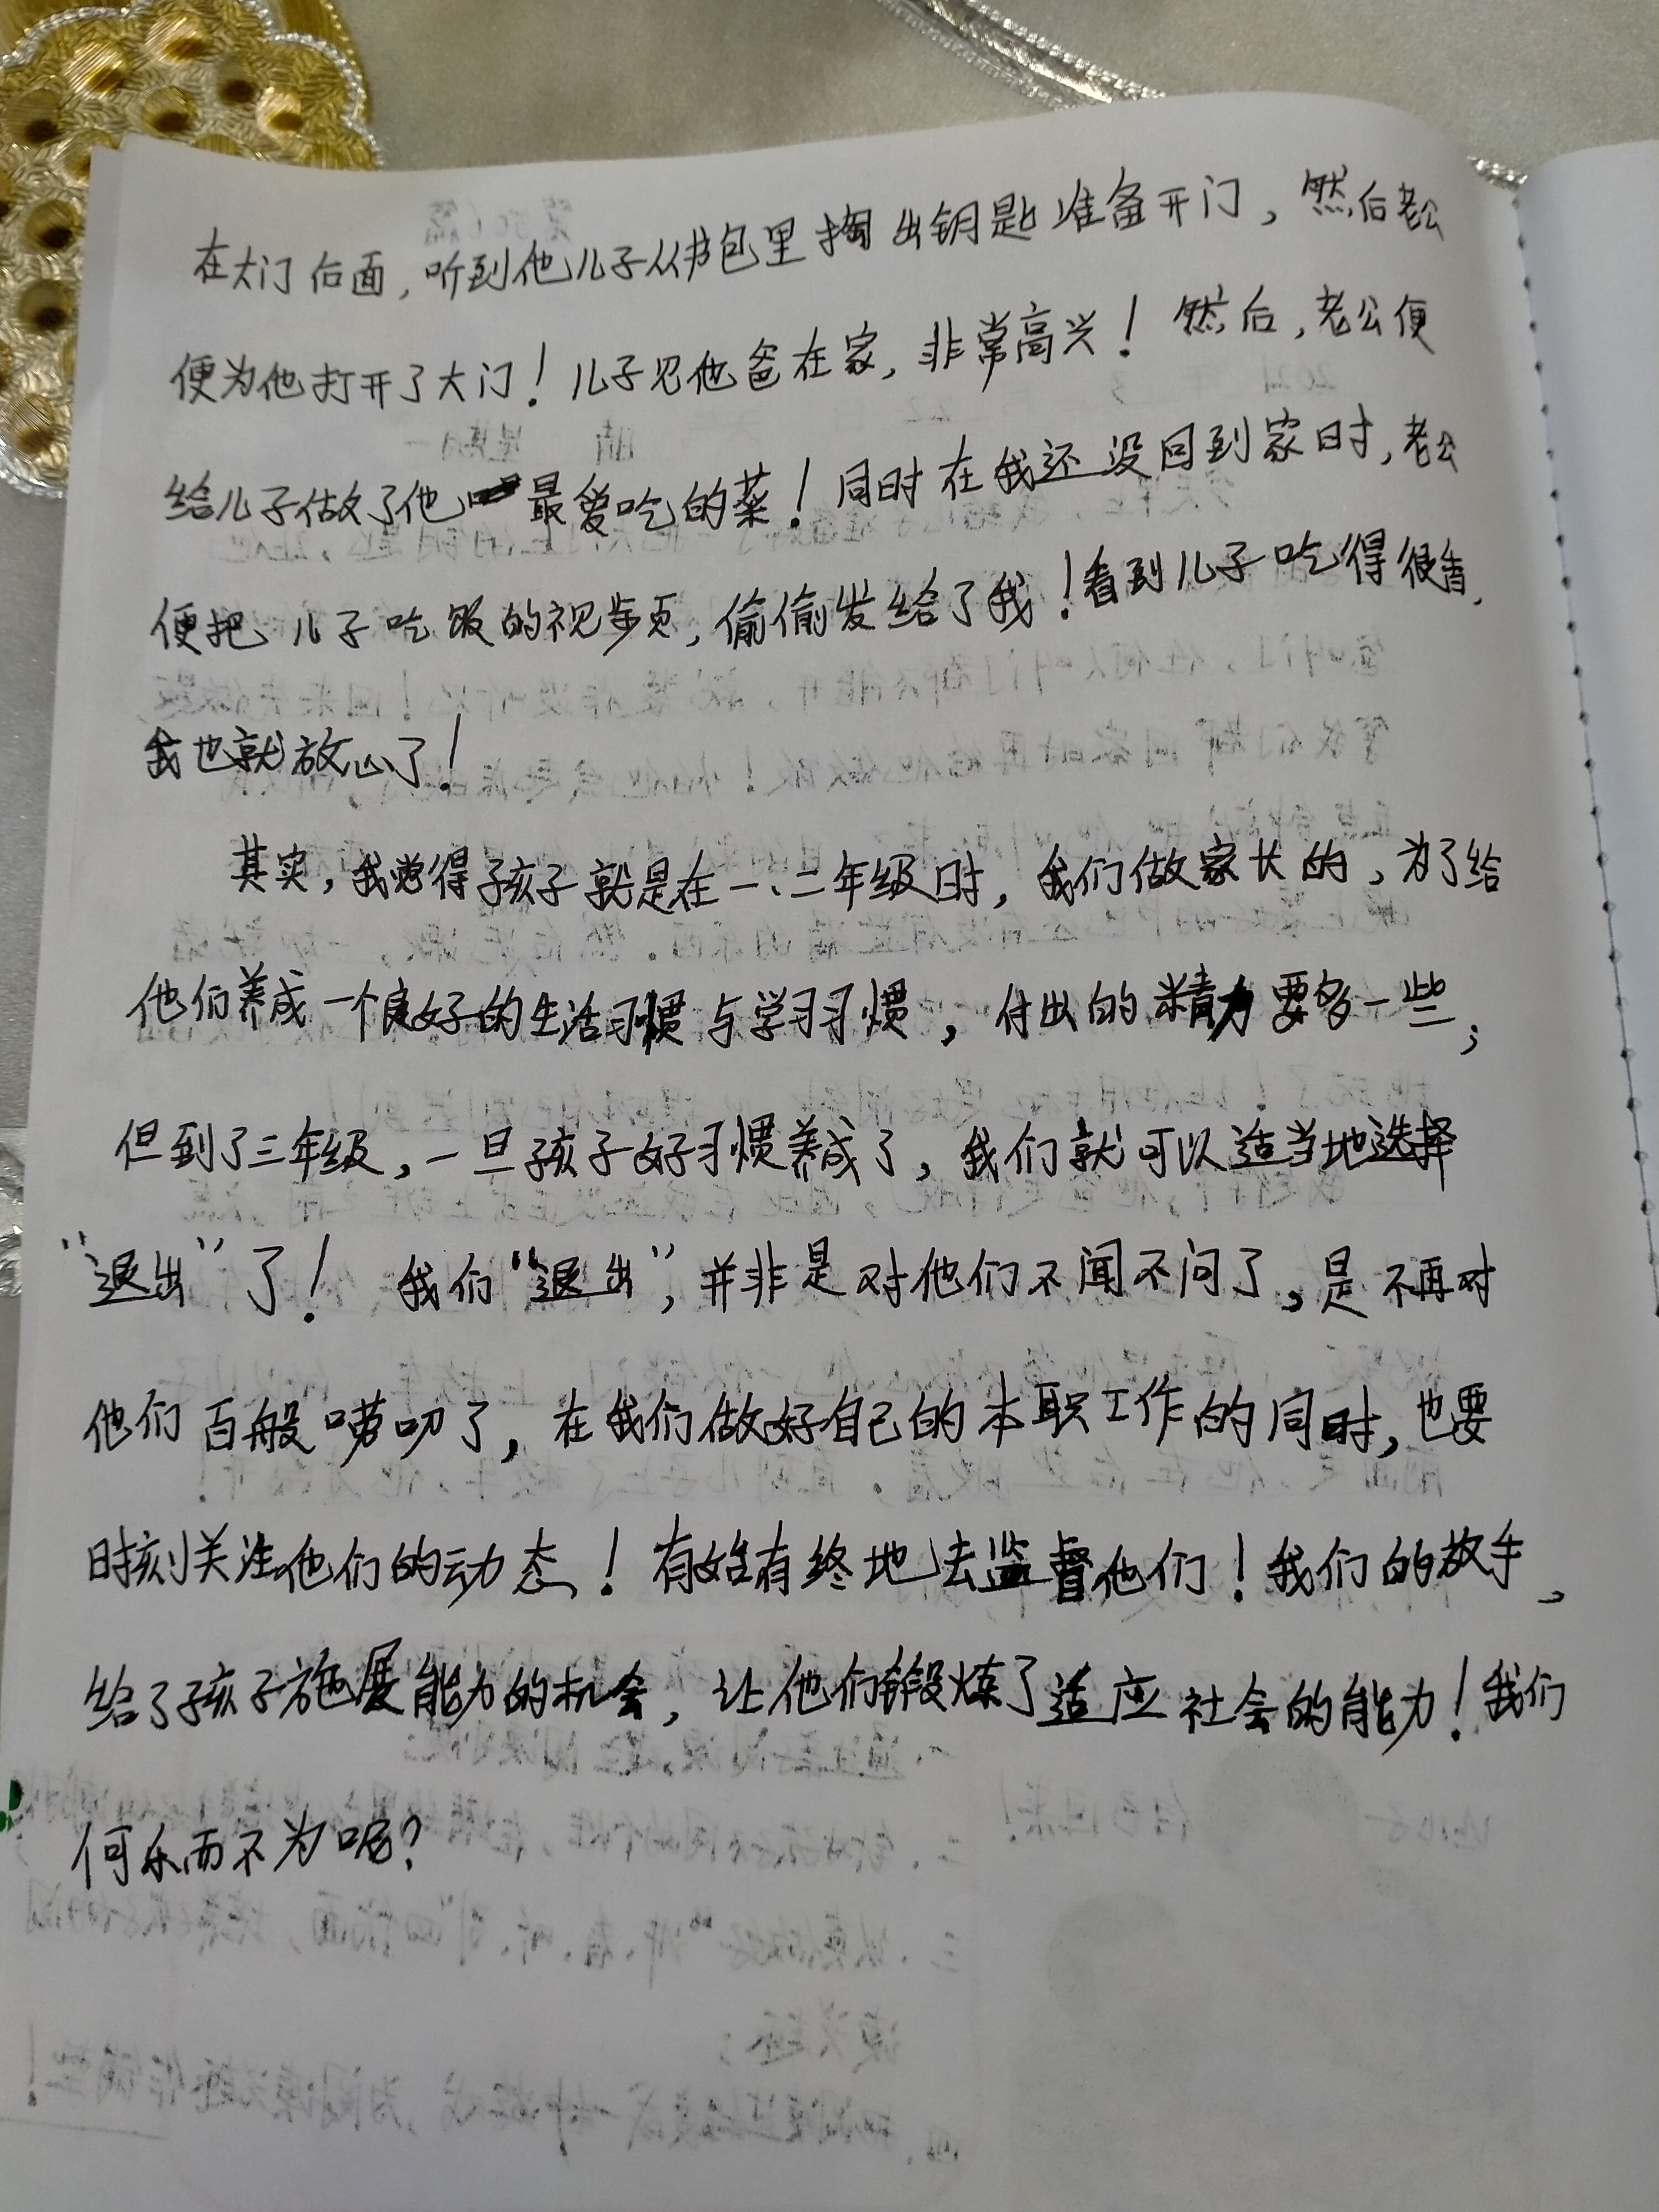 在大门后面，听到他儿子从书包里掏出钥匙准备开门，然后老公
便为他打开了大门！儿子见他爸在家，非常高兴！然后，老公便
给儿子做了他最爱吃的菜！同时在我还没回到家时，老公
便把儿子吃饭的视频，偷偷发给了我！看到儿子吃得很香，
我也就放心了！
其实，我觉得孩子就是在一、二年级时，我们做家长的，为了给
他们养成一个良好的生活习惯与学习习惯，付出的精力要多一些；
但到了三年级，一旦孩子好习惯养成了，我们就可以适当地选择
“退出”了！我们“退出”，并非是对他们不闻不问了，是不再对
他们百般唠叨了，在我们做好自己的本职工作的同时，也要
时刻关注他们的动态！有始有终地去监督他们！我们的放手，
给了孩子施展能力的机会，让他们锻炼了适应社会的能力！我们
何乐而不为呢？